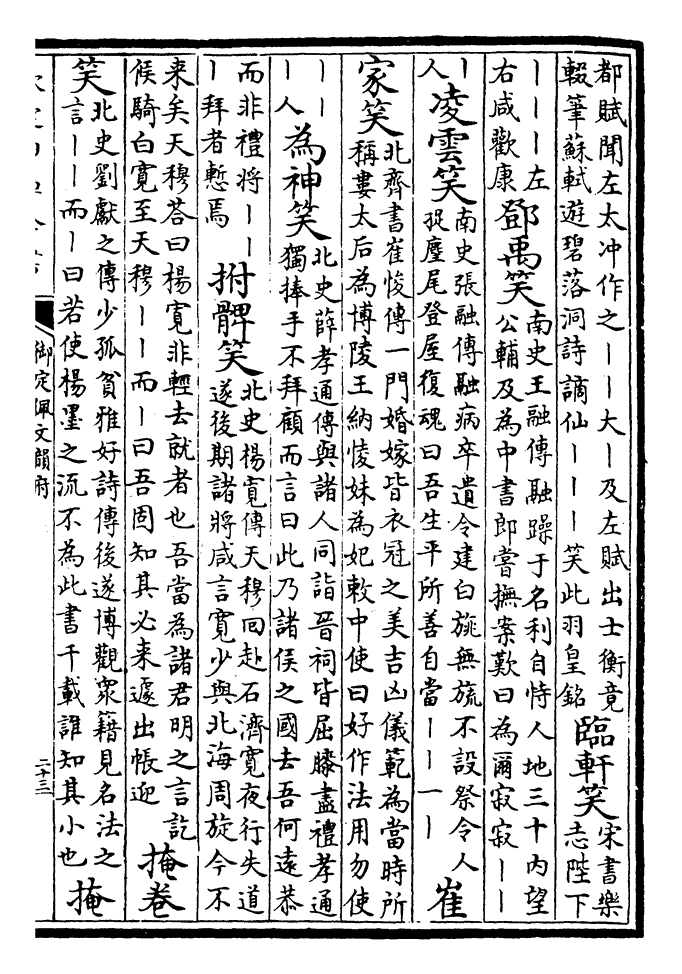 都賦聞左太冲作之丨丨大丨及左賦出士衡竟
輟筆蘇軾遊碧落洞詩謫仙丨丨丨笑此羽皇銘
臨軒笑
宋書樂
志陛下
丨丨丨左
右咸歡康
鄧禹笑
南史王融傳融躁于名利自恃人地三十内望
公輔及為中書郎嘗撫案歎曰為爾寂寂丨丨
丨
人
凌雲笑
南史張融傳融病卒遺令建白旐無旒不設祭令人
捉麈尾登屋復魂曰吾生平所善自當丨丨一丨
崔
家笑
北齊書崔㥄傳一門婚嫁皆衣冠之美吉凶儀範為當時所
稱婁太后為博陵王納㥄妹為妃敕中使曰好作法用勿使
丨丨
丨人
為神笑
北史薛孝通傳與諸人同詣晉祠皆屈膝盡禮孝通
獨捧手不拜顧而言曰此乃諸侯之國去吾何遠恭
而非禮將丨丨
丨拜者慙焉
拊髀笑
北史楊寛傳天穆回赴石濟寛夜行失道
遂後期諸將咸言寛少與北海周旋今不
来矣天穆答曰楊寛非輕去就者也吾當為諸君明之言訖
候騎白寛至天穆丨丨而丨曰吾固知其必来遽出帳迎
掩巻
笑
北史劉獻之傳少孤貧雅好詩傳後遂博觀衆籍見名法之
言丨丨而丨曰若使楊墨之流不為此書千載誰知其小也
掩
御定佩文韻府
二十三